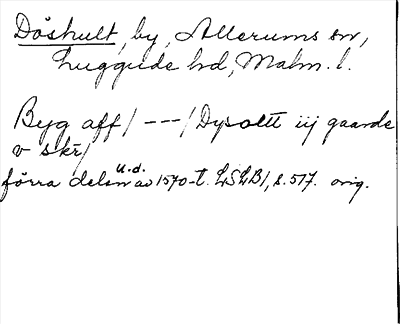 Döshult, by, Allerums sn,
Luggude hd, Malm. l.
Byg aff / --- / Dysoltt iij gaarde
v skr/
u.d.
förra delen av 1570-t. LSLB1, s. 517. orig.